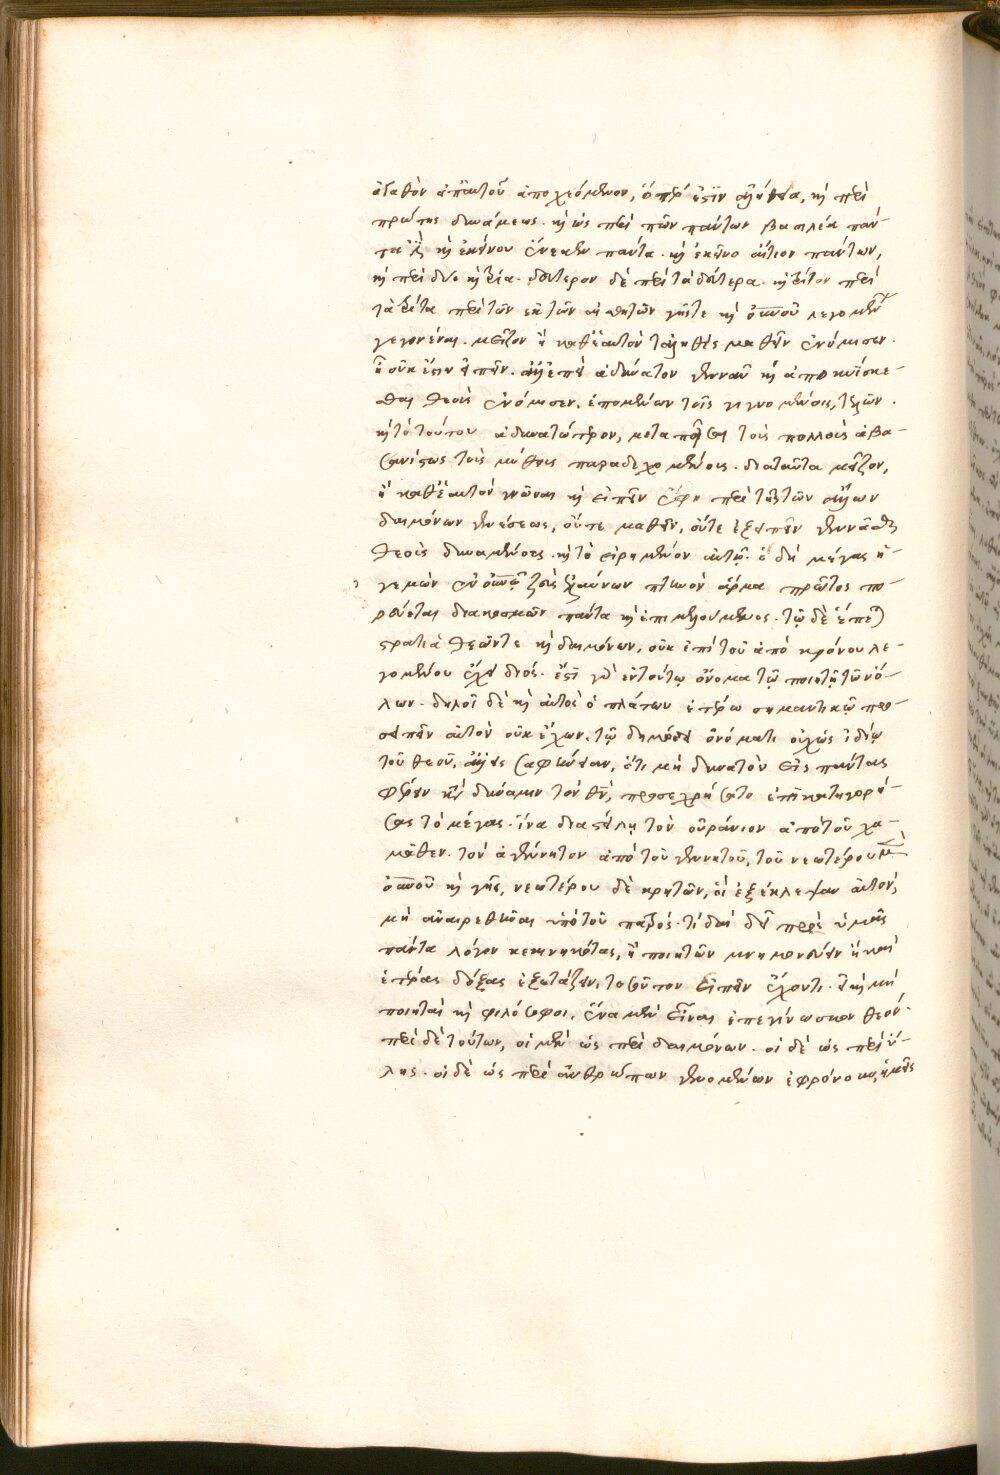 ἀγαθὸν ἀπ' αὐτοῦ ἀποχεόμενον, ὅπερ ἐστὶν ἀλήθεια, καὶ περὶ
πρώτης δυνάμεως. καὶ ὡς περὶ τῶν πάντων βασιλέα πάν-
τα ἐστὶ καὶ ἐκείνου ἕνεκεν πάντα. καὶ ἐκεῖνο αἴτιον πάντων,
καὶ περὶ δύο καὶ τρία. δεύτερον δὲ περὶ τὰ δεύτερα. καὶ τρίτον περὶ
τὰ τρίτα περὶ τῶν ἐκ τῶν αἰσθητῶν γῆς τε καὶ οὐνοῦ λεγομένων
γεγονέναι. μεῖζον ἢ καθ' ἑαυτὸν τἀληθὲς μαθεῖν ἐνόμισεν.
ἢ οὐκ ἔστιν εἰπεῖν. ἀλλ' ἐπεὶ ἀδύνατον γεννᾶν καὶ ἀποκυΐσκε-
σθαι θεοὺς ἐνόμισεν. ἑπομένων τοῖς γιγνομένοις, τελῶν.
καὶ τὸ τούτου ἀδυνατώτερον, μεταπεῖσαι τοὺς πολλοὺς ἀβα-
σανίστως τοὺς μύθους παραδεχομένους. διὰ ταῦτα μεῖζον,
ἢ καθ' ἑαυτὸν γνῶναι καὶ εἰπεῖν ἔφη περὶ τῆς τῶν ἄλλων
δαιμόνων γενέσεως, οὔτε μαθεῖν, οὔτε ἐξειπεῖν γεννᾶσθαι
θεοὺς δυναμένους. καὶ τὸ εἰρημένον αὐτῷ. ὁ δὴ μέγας ἡ-
γεμὼν ἐν οὐνῷ ζεὺς ἐλαύνων πτηνὸν ἅρμα πρῶτος πο-
ρεύεται διακοσμῶν πάντα καὶ ἐπιμελούμενος. τῷ δὲ ἕπεται
στρατιὰ θεῶν τε καὶ δαιμόνων, οὐκ ἐπὶ τοῦ ἀπὸ κρόνου λε-
γομένου ἔχει διός. ἔστι γὰρ ἐν τούτῳ ὄνομα τῷ ποιητῇ τῶν ὅ-
λων. δηλοῖ δὲ καὶ αὐτὸς ὁ πλάτων ἑτέρω σημαντικῷ προ-
σειπεῖν αὐτὸν οὐκ ἔχων. τῷ δημώδει ὀνόματι οὐχ ὡς ἰδίῳ
τοῦ θεοῦ, ἀλλ' εἰς σαφήνειαν, ὅτι μὴ δυνατὸν εἰς πάντας
φέρειν κατὰ δύναμιν τὸν θν, προσεχρήσατο ἐπικατηγορή-
σας τὸ μέγας. ἵνα διαστείλῃ τὸν οὐράνιον ἀπὸ τοῦ χα-
μᾶθεν. τὸν ἀγένητον ἀπὸ τοῦ γενητοῦ, τοῦ νεωτέρου μὲν
οὐνοῦ καὶ γῆς, νεωτέρου δὲ κρητῶν, οἱ ἐξέκλεψαν αὐτὸν,
μὴ ἀναιρεθῆναι ὑπὸ τοῦ πατρός. τί δαὶ δεῖ πρὸς ὑμᾶς
πάντα λόγον κεκινηκότας, ἢ ποιητῶν μνημονεύειν ἢ καὶ
ἑτέρας δόξας ἐξετάζειν, τοσοῦτον εἰπεῖν ἔχοντι. εἰ καὶ μὴ
ποιηταὶ καὶ φιλόσοφοι, ἕνα μὲν εἶναι ἐπεγίνωσκον θεόν.
περὶ δὲ τούτων, οἱ μὲν ὡς περὶ δαιμόνων. οἱ δὲ ὡς περὶ ὕ-
λης. οἱ δὲ ὡς περὶ ἀνθρώπων γενομένων ἐφρόνουν, ἡμεῖς